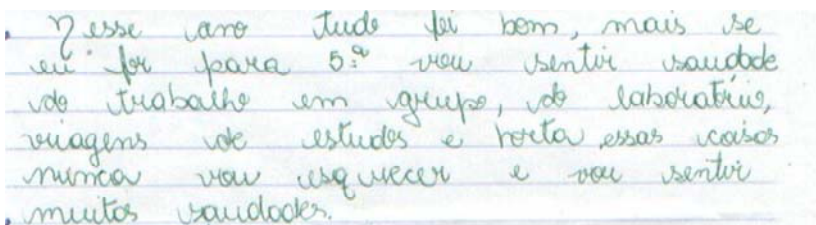 Nesse ano tudo foi bom, mais se
eu for para 5ª vou sentir saudade
do trabalho em grupo, do laboratório,
viagens de estudos e horta, essas coisas
nunca vou esquecer e vou sentir
muitas saudades.